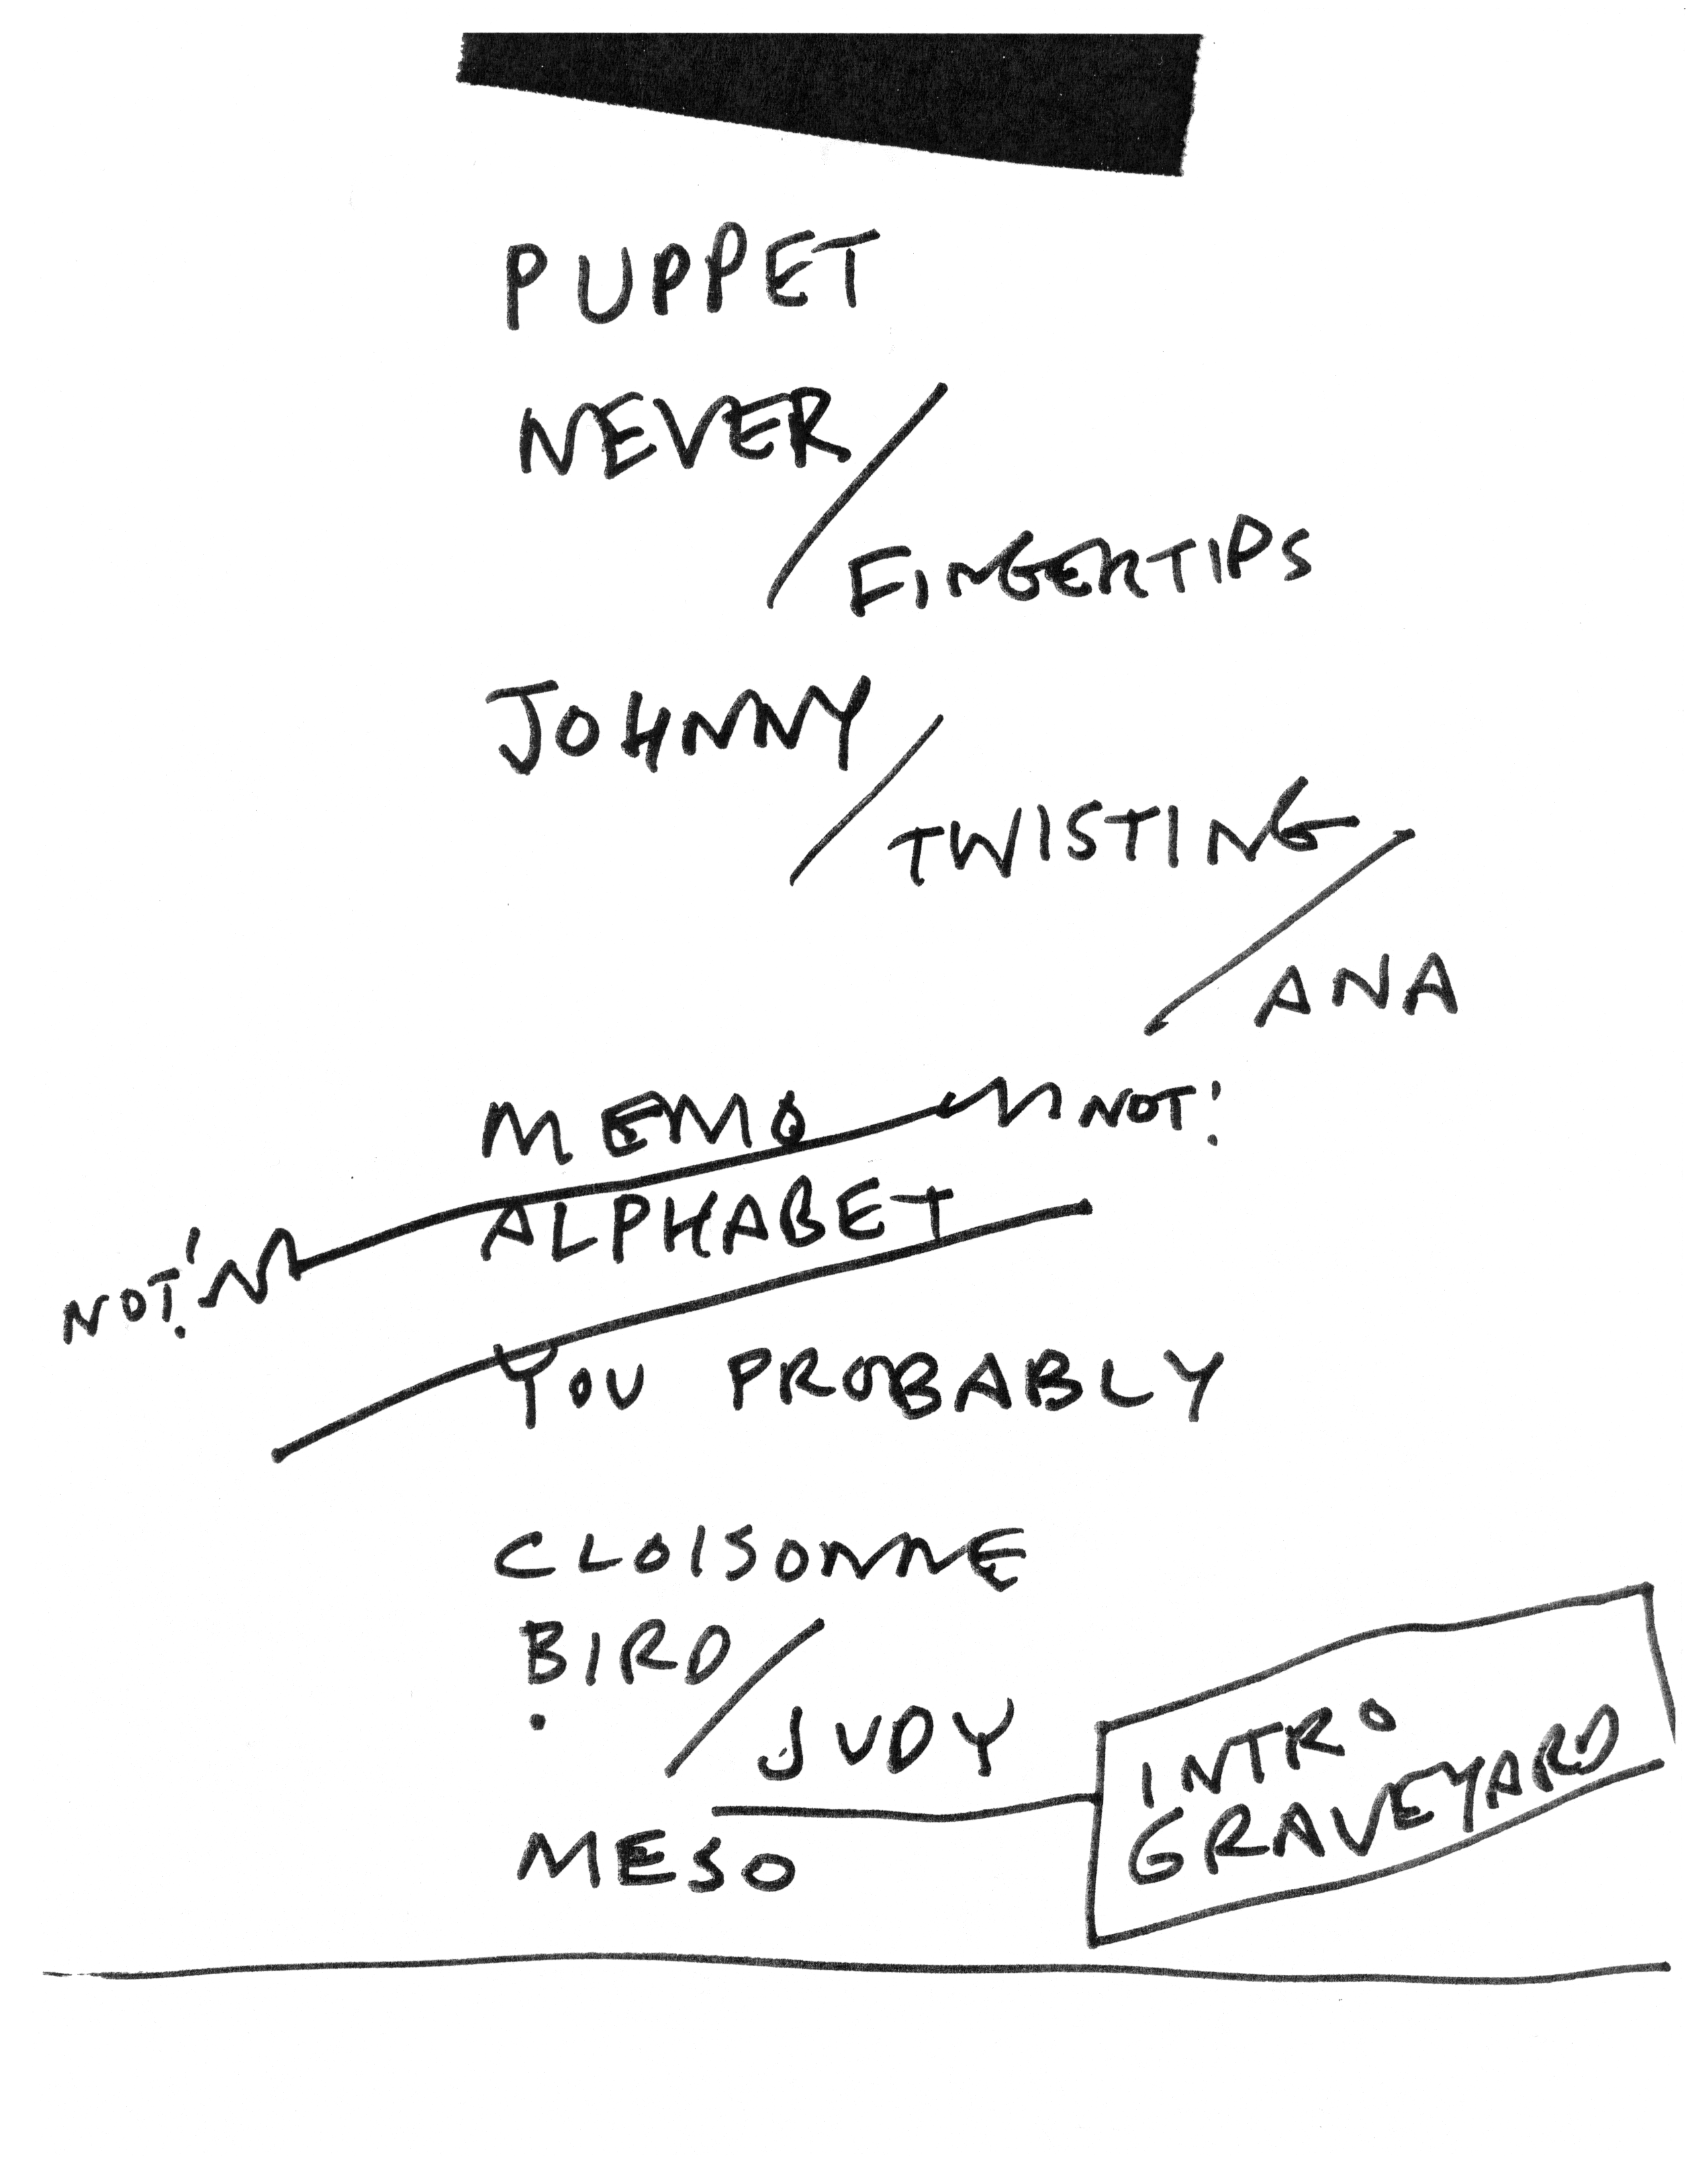 PUPPET
NEVER/
FINGERTIPS
JOHNNY/
TWISTING/
ANA
MEMO NOT!
ALPHABET
NOT!
YOU PROBABLY
CLOISONNE
BIRD/
JUDY
INTRO
GRAVEYARD
MESO